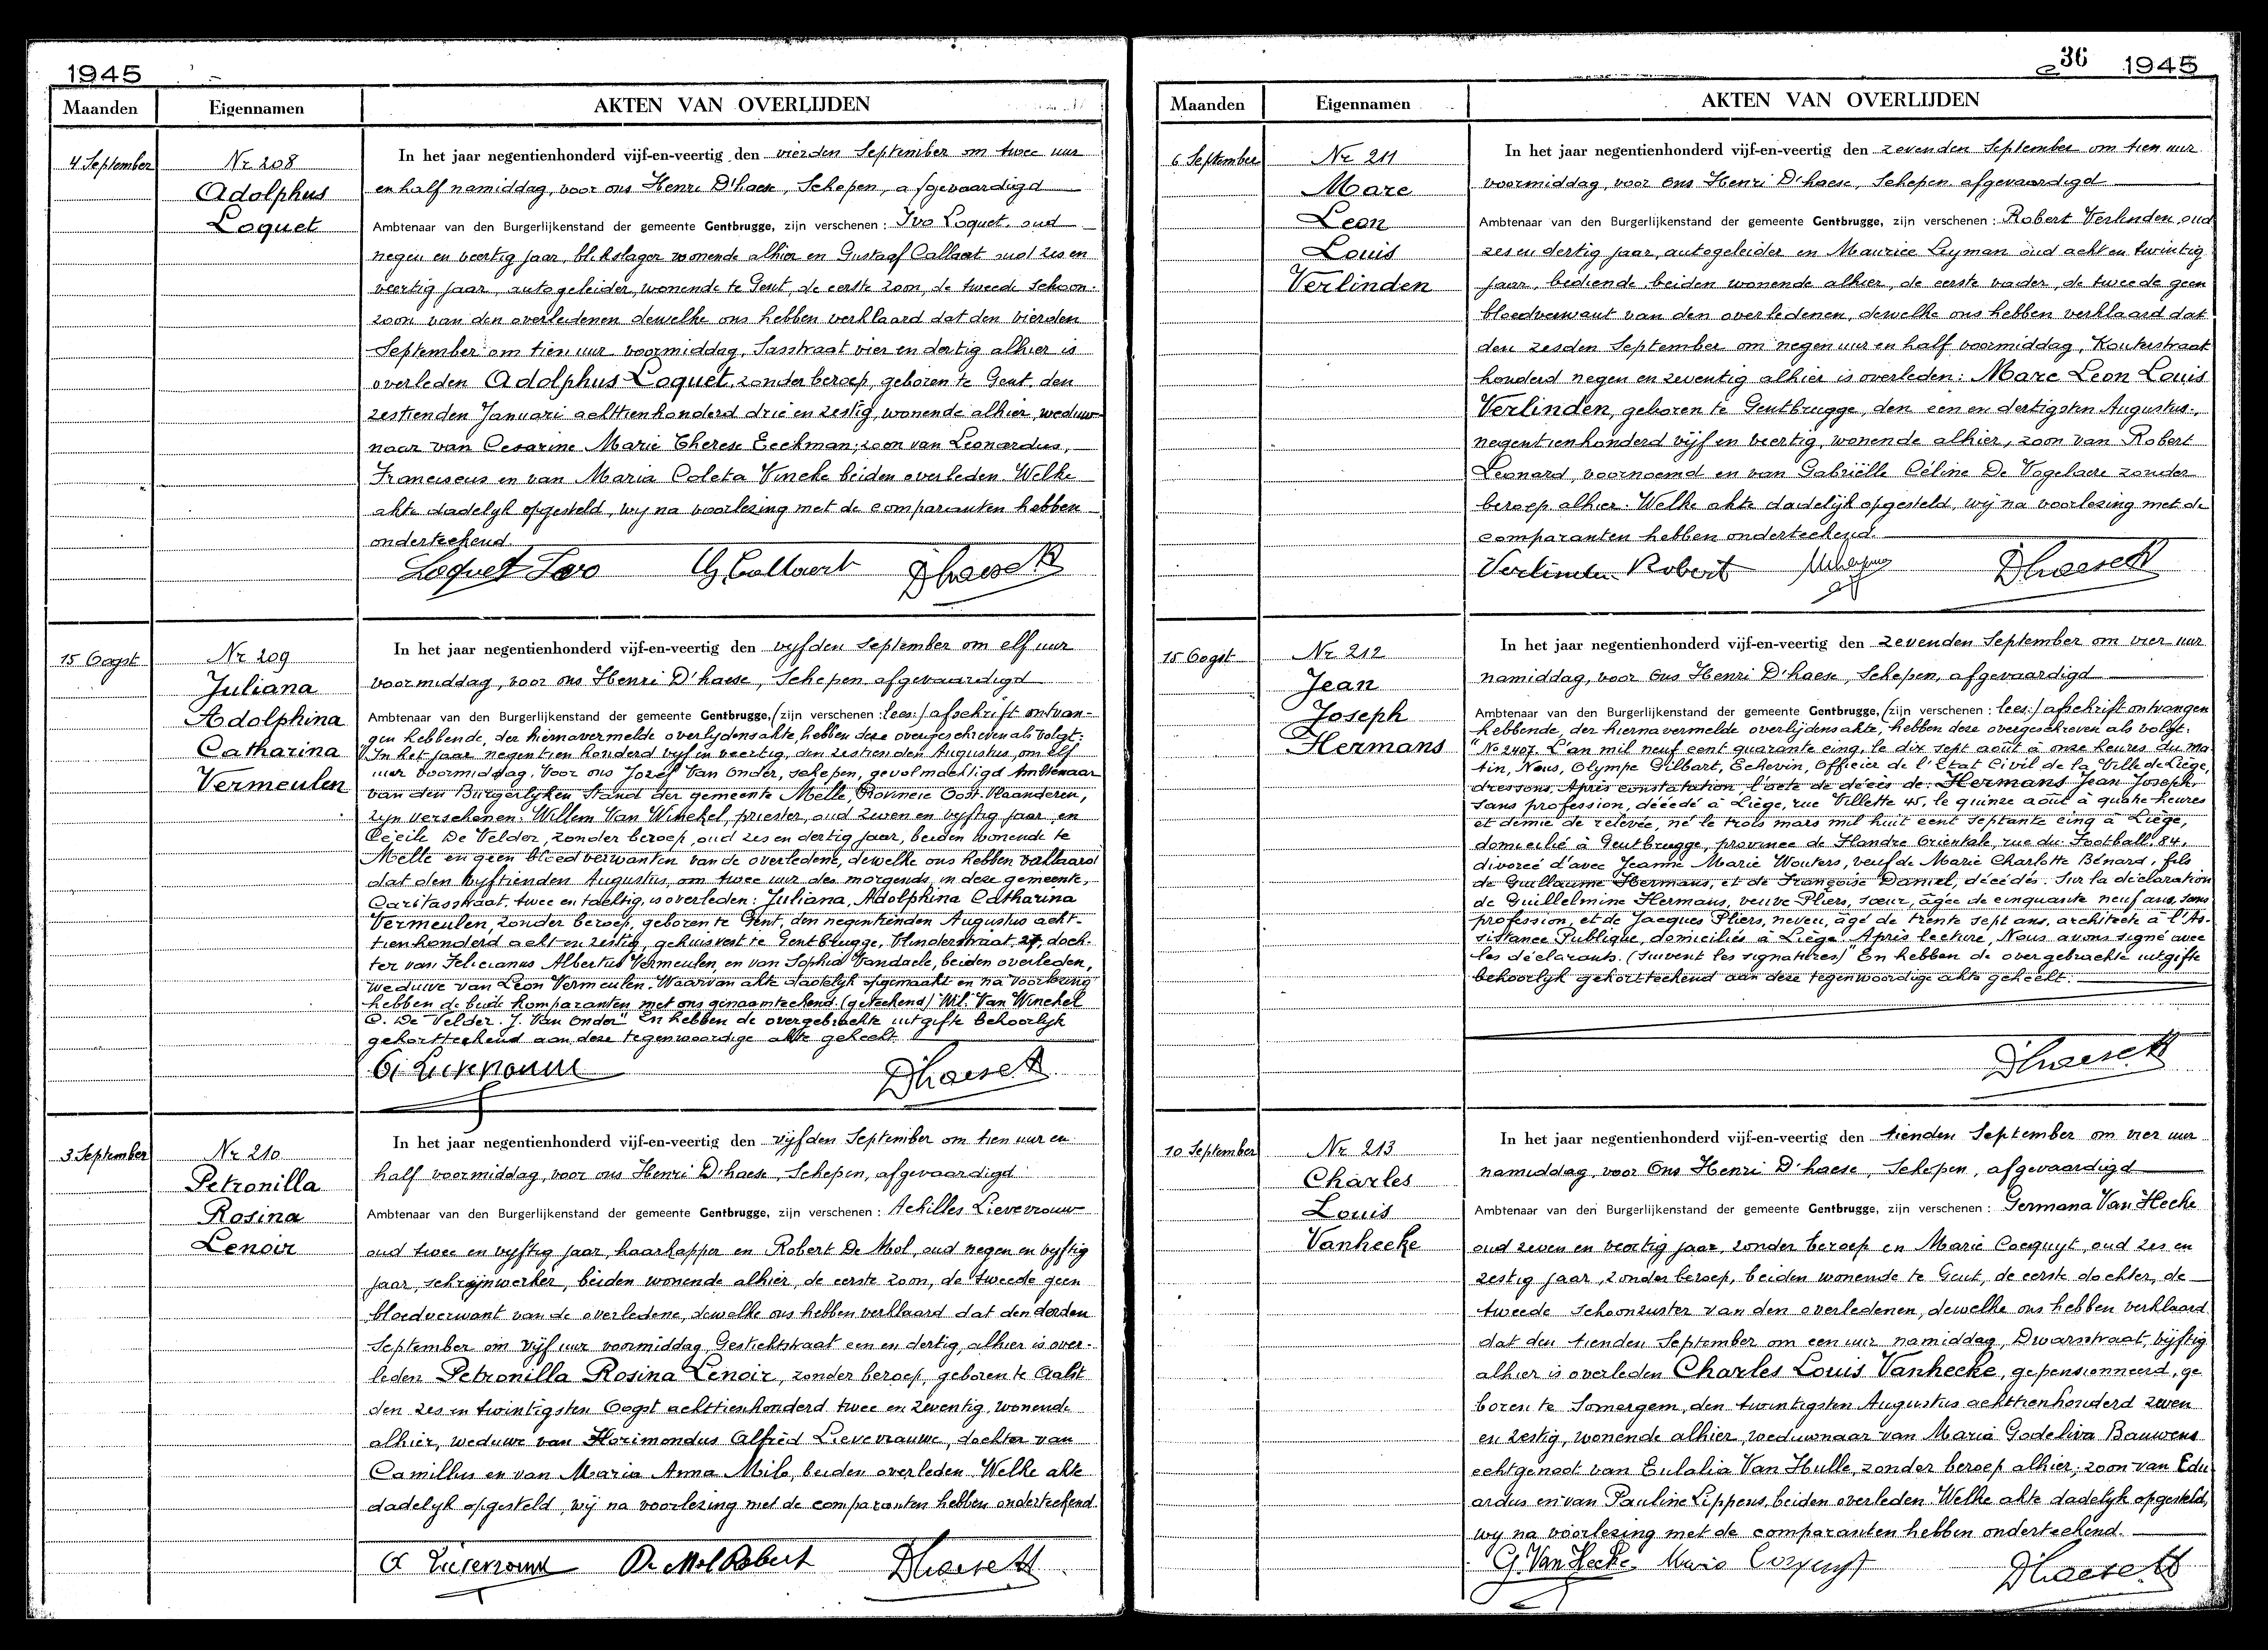 1945
Maanden
Eigennamen
AKTEN VAN OVERLIJDEN
4 September
Nr 208
Adolphus
Loquet
In het jaar negentienhonderd vijf-en-veertig den vierden September om twee uur
en half namiddag, voor ons Henri D'haese, Schepen, afgevaardigd
Ambtenaar van den Burgerlijkenstand der gemeente Gentbrugge, zijn verschenen: Ivo Loquet, oud
negen en veertig jaar, blikslager wonende alhier en Gustaaf Callaert oud zes en
veertig jaar, autogeleider, wonende te Gent, de eerste zoon, de tweede schoon-
zoon van den overledenen dewelke ons hebben verklaard dat den vierden
September om tien uur voormiddag, Sasstraat vier en dertig alhier is
overleden Adolphus Loquet, zonder beroep, geboren te Gent, den
zestienden Januari achttienhonderd drie en zestig, wonende alhier, weduw-
naar van Cesarine Marie Therese Eeckman; zoon van Leonardus,
Franciscus en van Maria Coleta Vincke beiden overleden. Welke
akte dadelyk opgesteld, wy na voorlezing met de comparanten hebben
onderteekend.
Loquet Ivo G. Callaert D'haese H
15 Oogst
Nr 209
Juliana
Adolphina
Catharina
Vermeulen
In het jaar negentienhonderd vijf-en-veertig den vyfden September om elf uur
voormiddag, voor ons Henri D'haese, Schepen afgevaardigd
Ambtenaar van den Burgerlijkenstand der gemeente Gentbrugge, (zijn verschenen: lees:) afschrift ontvan-
gen hebbende, der hiernavermelde overlydensakte, hebben deze overgeschreven als volgt:
"In het jaar negentien honderd vyf en veertig, den zestienden Augustus, om elf
uur voormiddag. Voor ons Jozef Van Onder, schepen, gevolmachtigd Ambtenaar
van den Burgerlyken Stand der gemeente Melle, Provincie Oost-Vlaanderen,
zyn verschenen: Willem Van Winckel, priester, oud zeven en vyftig jaar, en
Cecile De Velder, zonder beroep, oud zes en dertig jaar, beiden wonende te
Melle en geen bloedverwanten van de overledene, dewelke ons hebben verklaard
dat den vyftienden Augustus, om twee uur des morgends, in deze gemeente,
Caritasstraat, twee en tachtig, is overleden: Juliana, Adolphina Catharina
Vermeulen, zonder beroep, geboren te Gent, den negentienden Augustus acht-
tienhonderd acht en zestig, gehuisvest te Gentbrugge, Vlinderstraat, 27, doch-
ter van Felicianus Albertus Vermeulen, en van Sophia Vandaele, beiden overleden,
weduwe van Leon Vermeulen. Waarvan akte dadelyk opgemaakt en na voorlezing
hebben de beide komparanten met ons genaamteekend. (geteekend) Wil. Van Winckel
C. De Velder. J. Van Onder" En hebben de overgebrachte uitgifte behoorlyk
gekortteekend aan deze tegenwoordige akte gehecht.
D'haese H
3 September
Nr 210
Petronilla
Rosina
Lenoir
In het jaar negentienhonderd vijf-en-veertig den vyfden September om tien uur en
half voormiddag, voor ons Henri D'haese, Schepen, afgevaardigd
Ambtenaar van den Burgerlijkenstand der gemeente Gentbrugge, zijn verschenen: Achilles Lievevrouw
oud twee en vyftig jaar, haarkapper en Robert De Mol, oud negen en vyftig
jaar, schrijnwerker, beiden wonende alhier, de eerste zoon, de tweede geen
bloedverwant van de overledene, dewelke ons hebben verklaard dat den derden
September om vijf uur voormiddag, Gestichtstraat een en dertig, alhier is over-
leden Petronilla Rosina Lenoir, zonder beroep, geboren te Aalst
den zes en twintigsten Oogst achttienhonderd twee en zeventig, wonende
alhier, weduwe van Florimondus Alfred Lievevrauwe, dochter van
Camillus en van Maria Anna Milo, beiden overleden. Welke akte
dadelyk opgesteld, wij na voorlezing met de comparanten hebben onderteekend
A Lievevrouw De Mol Robert D'haese H
36 1945
Maanden
Eigennamen
AKTEN VAN OVERLIJDEN
6 September
Nr 211
Marc
Leon
Louis
Verlinden
In het jaar negentienhonderd vijf-en-veertig den zevenden September om tien uur
voormiddag, voor Ons Henri D'haese, Schepen afgevaardigd
Ambtenaar van den Burgerlijkenstand der gemeente Gentbrugge, zijn verschenen: Robert Verlinden, oud
zes en dertig jaar, autogeleider en Maurice Leyman oud acht en twintig
jaar, bediende, beiden wonende alhier, de eerste vader, de tweede geen
bloedverwant van den overledenen, dewelke ons hebben verklaard dat
den zesden September om negen uur en half voormiddag, Kouterstraat
honderd negen en zeventig alhier is overleden: Marc Leon Louis
Verlinden, geboren te Gentbrugge, den een en dertigsten Augustus,
negentienhonderd vijf en veertig, wonende alhier, zoon van Robert
Leonard, voornoemd en van Gabriëlle Céline De Vogelaere zonder
beroep alhier. Welke akte dadelijk opgesteld, wij na voorlezing met de
comparanten hebben onderteekend.
Verlinden Robert D'haese H
15 Oogst
Nr 212
Jean
Joseph
Hermans
In het jaar negentienhonderd vijf-en-veertig den zevenden September om vier uur
namiddag, voor Ons Henri D'haese, Schepen, afgevaardigd
Ambtenaar van den Burgerlijkenstand der gemeente Gentbrugge, (zijn verschenen: lees:) afschrift ontvangen
hebbende, der hiernavermelde overlijdensakte, hebben deze overgeschreven als volgt:
"No 2407. L'an mil neuf cent quarante cinq, le dix sept août à onze heures du ma
tin, Nous, Olympe Gilbart, Echevin, Officier de l'Etat Civil de la Ville de Liège,
dressons, Après constatation, l'acte de décès de: Hermans Jean Joseph,
sans profession, décédé à Liège, rue Villette 45, le quinze août à quatre heures
et demie de relevée, né le trois mars mil huit cent septante cinq à Liège,
domicilié à Gentbrugge, province de Flandre Orientale, rue du Football, 84,
divorcé d'avec Jeanne Marie Wouters, veuf de Marie Charlotte Bénard, fils
de Guillaume Hermans, et de Françoise Daniel, décédés. Sur la déclaration
de Guillelmine Hermans, veuve Pliers, sœur, âgée de cinquante neuf ans, sans
profession, et de Jacques Pliers, neveu, âgé de trente sept ans, architecte à l'As-
sistance Publique, domiciliés à Liège. Après lecture, Nous avons signé avec
les déclarants. (suivent les signatures)" En hebben de overgebrachte uitgifte
behoorlyk gekortteekend aan deze tegenwoordige akte gehecht.
D'haese H
10 September
Nr 213
Charles
Louis
Vanhecke
In het jaar negentienhonderd vijf-en-veertig den tienden September om vier uur
namiddag, voor Ons Henri D'haese, Schepen, afgevaardigd
Ambtenaar van den Burgerlijkenstand der gemeente Gentbrugge, zijn verschenen: Germana Van Hecke
oud zeven en veertig jaar, zonder beroep en Marie Cocquyt, oud zes en
zestig jaar, zonder beroep, beiden wonende te Gent, de eerste dochter, de
tweede schoonzuster van den overledenen, dewelke ons hebben verklaard
dat den tienden September om een uur namiddag, Dwarsstraat, vijftig
alhier is overleden Charles Louis Vanhecke, gepensionneerd, ge
boren te Somergem, den twintigsten Augustus achttienhonderd zeven
en zestig, wonende alhier, weduwnaar van Maria Godeliva Bauwens
echtgenoot van Eulalia Van Hulle, zonder beroep alhier; zoon van Edu
ardus en van Pauline Lippens, beiden overleden. Welke akte dadelyk opgesteld,
wy na voorlezing met de comparanten hebben onderteekend.
G. Van Hecke Marie Cocquyt D'haese H